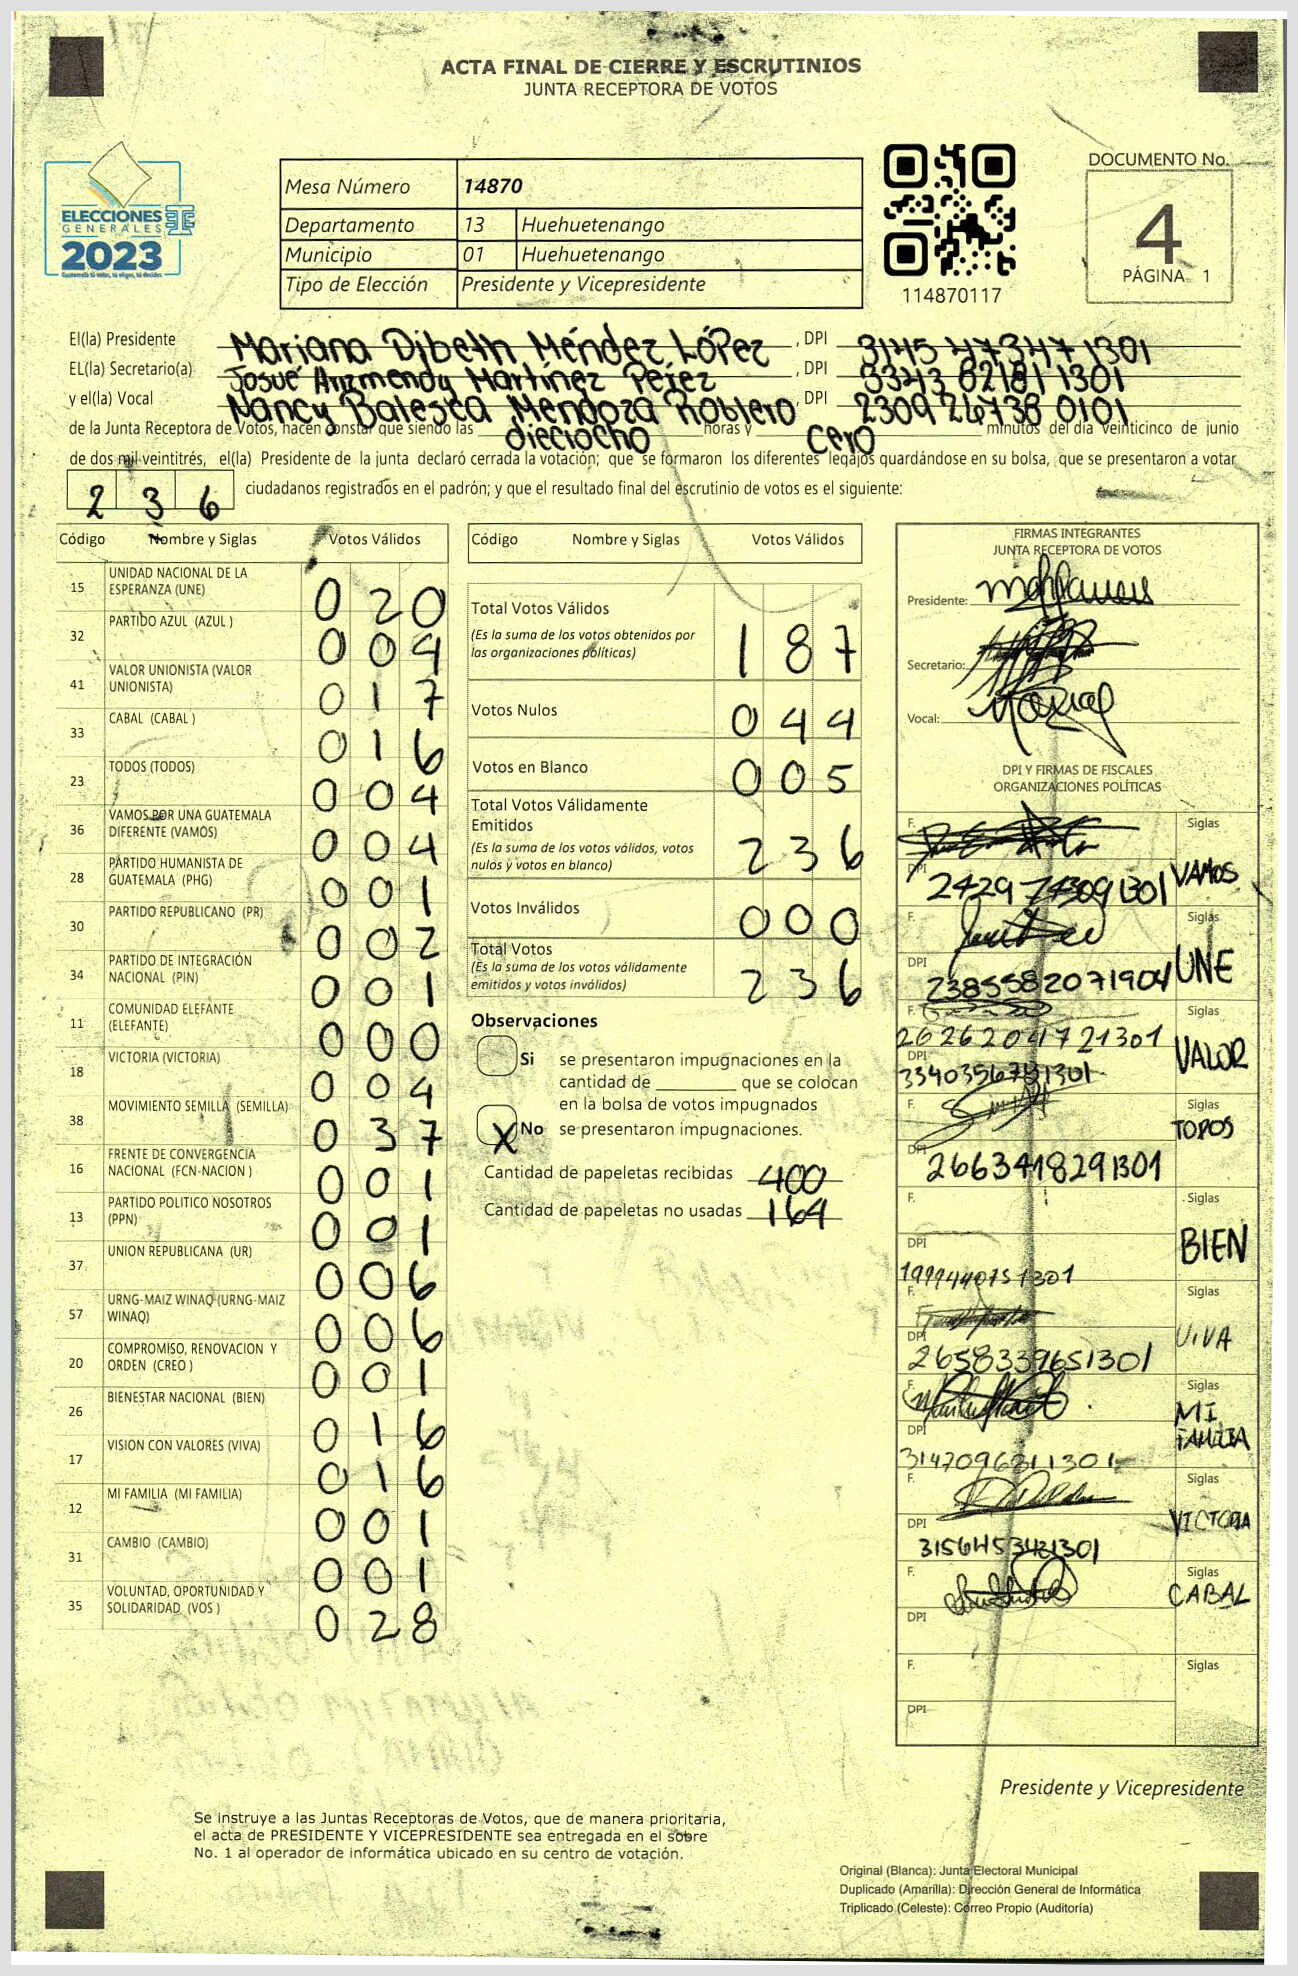 ACTA FINAL DE CIERRE Y ESCRUTINIOS
JUNTA RECEPTORA DE VOTOS
ELECCIONES
GENERALES
2023
Mesa Número 14870
Departamento 13 Huehuetenango
Municipio 01 Huehuetenango
Tipo de Elección Presidente y Vicepresidente
114870117
DOCUMENTO No.
4
PÁGINA 1
El(la) Presidente Mariana Dibeth Méndez López, DPI 3145 47347 1301
EL(la) Secretario(a) Josué Arizmendy Martínez Pérez, DPI 3343 02181 1301
y el(la) Vocal Nancy Baleska Mendoza Roblero, DPI 2309 26738 0101
de la Junta Receptora de Votos, hacen constar que siendo las dieciocho horas y cero minutos del día veinticinco de junio
de dos mil veintitrés, el(la) Presidente de la junta declaró cerrada la votación; que se formaron los diferentes legajos guardándose en su bolsa, que se presentaron a votar
236 ciudadanos registrados en el padrón; y que el resultado final del escrutinio de votos es el siguiente:
Código Nombre y Siglas Votos Válidos
15 UNIDAD NACIONAL DE LA ESPERANZA (UNE) 020
32 PARTIDO AZUL (AZUL ) 004
41 VALOR UNIONISTA (VALOR UNIONISTA) 017
33 CABAL (CABAL ) 016
23 TODOS (TODOS) 004
36 VAMOS POR UNA GUATEMALA DIFERENTE (VAMOS) 004
28 PARTIDO HUMANISTA DE GUATEMALA (PHG) 001
30 PARTIDO REPUBLICANO (PR) 002
34 PARTIDO DE INTEGRACIÓN NACIONAL (PIN) 001
11 COMUNIDAD ELEFANTE (ELEFANTE) 000
18 VICTORIA (VICTORIA) 004
38 MOVIMIENTO SEMILLA (SEMILLA) 037
16 FRENTE DE CONVERGENCIA NACIONAL (FCN-NACION ) 001
13 PARTIDO POLITICO NOSOTROS (PPN) 001
37 UNION REPUBLICANA (UR) 006
57 URNG-MAIZ WINAQ (URNG-MAIZ WINAQ) 006
20 COMPROMISO, RENOVACION Y ORDEN (CREO ) 001
26 BIENESTAR NACIONAL (BIEN) 016
17 VISION CON VALORES (VIVA) 016
12 MI FAMILIA (MI FAMILIA) 001
31 CAMBIO (CAMBIO) 001
35 VOLUNTAD, OPORTUNIDAD Y SOLIDARIDAD (VOS ) 028
Código Nombre y Siglas Votos Válidos
Total Votos Válidos 187
(Es la suma de los votos obtenidos por
las organizaciones políticas)
Votos Nulos 044
Votos en Blanco 005
Total Votos Válidamente
Emitidos 236
(Es la suma de los votos válidos, votos
nulos y votos en blanco)
Votos Inválidos 000
Total Votos 236
(Es la suma de los votos válidamente
emitidos y votos inválidos)
Observaciones
Si se presentaron impugnaciones en la
cantidad de ________ que se colocan
en la bolsa de votos impugnados
X No se presentaron impugnaciones.
Cantidad de papeletas recibidas 400
Cantidad de papeletas no usadas 164
FIRMAS INTEGRANTES
JUNTA RECEPTORA DE VOTOS
Presidente:
Secretario:
Vocal:
DPI Y FIRMAS DE FISCALES
ORGANIZACIONES POLÍTICAS
F. Siglas
DPI 2429 74309 1301 VAMOS
F. Siglas
DPI 2385582071904 UNE
F.
2626204721301
DPI VALOR
3340356781301
F. Siglas
TODOS
DPI 2663418291301
F. Siglas
BIEN
DPI
1999440751301
F. Siglas
VIVA
DPI 2658339651301
F. Siglas
MI FAMILIA
DPI
3147096311301
F. Siglas
VICTORIA
DPI
3156453421301
F. Siglas
CABAL
DPI
F. Siglas
DPI
Presidente y Vicepresidente
Se instruye a las Juntas Receptoras de Votos, que de manera prioritaria,
el acta de PRESIDENTE Y VICEPRESIDENTE sea entregada en el sobre
No. 1 al operador de informática ubicado en su centro de votación.
Original (Blanca): Junta Electoral Municipal
Duplicado (Amarilla): Dirección General de Informática
Triplicado (Celeste): Correo Propio (Auditoría)